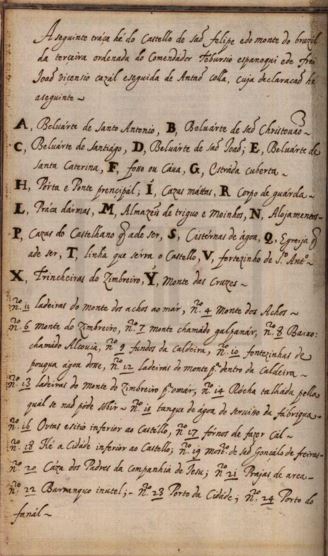 A seguinte traça hé do Castello de saõ felipe e do monte do brazil
da terceira ordenada do Comendador Tiburssio espanoqui e de frei
Joaõ vicensio cazal e seguida de Antº colla, cuja declaracaõ he
aseguinte ~
A, Beluárte de Santo Antonio, B, Beluárte de saõ Christouaõ ~
C, Beluárte de Santiágo, D, Beluárte de saõ Joaõ, E, Beluárte de
santa Caterina, F, foço ou Cáua, G, Estráda cuberta ~
H, Pórta e Ponte prencipal, I, Cazas mátas, R Corpo de guárda ~
L, Práca dármas, M, Almazeis de triguo e Moinhos, N, Alojamentos ~
P, Cazas do Castelhano q̃ ade ser, S, Castérnas de ágoa, Q, Egreija q̃
ade ser, T, linha que sérra o Castello, V, fortezinho de S.to Antº ~
X, Trincheiras do Zimbreiro, Y, Monte das Cruzes ~
Nº 11 ladeiras do monte dos áchos ao már, Nº 4 Monte dos Achos ~
Nº 6 monte do Zimbreiro, Nº 7 monte chamádo galpanár, Nº 8 Baixo:
chamádo Alcouia, Nº 9 fundos da caldeira, Nº 10 fontezinhas de
pouqua ágoa dóce, Nº 12 ladeiras do monte pª dentro da Caldeira ~
Nº 13 ladeiras do Monte do Zimbreiro pª omár, Nº 14 Rócha talháda pella
qual se naõ póde sobir ~ Nº 15 tanque de ágoa do seruiso da fabriqua ~
Nº 16 Ortas esitio inferior ao Castello, Nº 17 fórnos de fazer Cál ~
Nº 18 Hé a Cidáde inferior ao Castello, Nº 19 Mostº de saõ Gonsálo de freiras ~
Nº 20 Caza dos Pádres da Companhia de Jesu, Nº 21 Prajas de area ~
Nº 22 Barranquo inutel; ~ Nº 23 Porto da Cidáde, Nº 24 Porto do
fanál ~